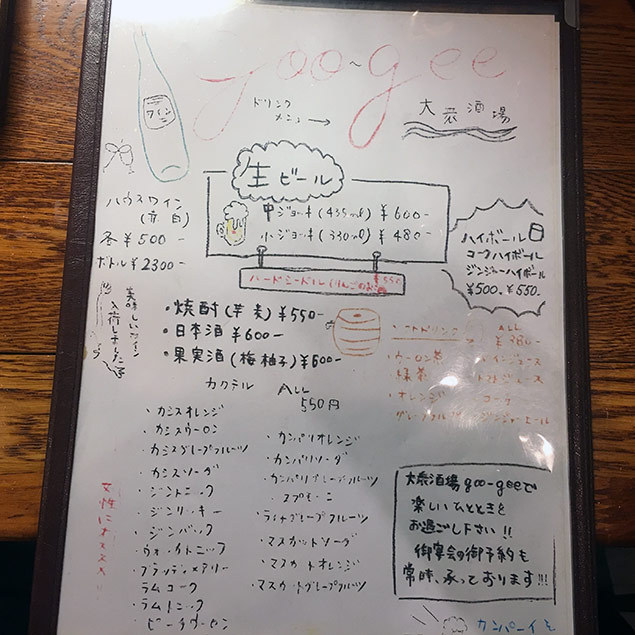 goo~gee
ドリンク
メニュー→
大衆酒場
ワイン
生ビール
中ジョッキ(435ml) ¥600-
小ジョッキ(330ml) ¥480-
ハードシードル(りんごのお酒) ¥550
ハウスワイン
(赤 白)
各¥500-
ボトル¥2300-
美味しいワイン
入荷しました
ハイボール
コークハイボール
ジンジャーハイボール
¥500. ¥550.
・焼酎(芋 麦) ¥550-
・日本酒 ¥600-
・果実酒(梅 柚子) ¥600-
・ソフトドリンク ALL
¥380-
・ウーロン茶
緑茶
・オレンジ
グレープフルーツ
・パインジュース
トマトジュース
コーク
ジンジャーエール
カクテル ALL
550円
・カシスオレンジ
・カシスウーロン
・カシスグレープフルーツ
・カシスソーダ
・ジントニック
・ジンリッキー
・ジンバック
・ウォッカトニック
・ブラッディメアリー
ラムコーク
・ラムトニック
・カンパリオレンジ
・カンパリソーダ
・カンパリグレープフルーツ
・スプモーニ
・ライチグレープフルーツ
・マスカットソーダ
・マスカットオレンジ
・マスカットグレープフルーツ
女性にオススメ
大衆酒場goo-geeで
楽しいひとときを
お過ごし下さい!!
御宴会の御予約も
常時、承っております!!!
カンパーイを